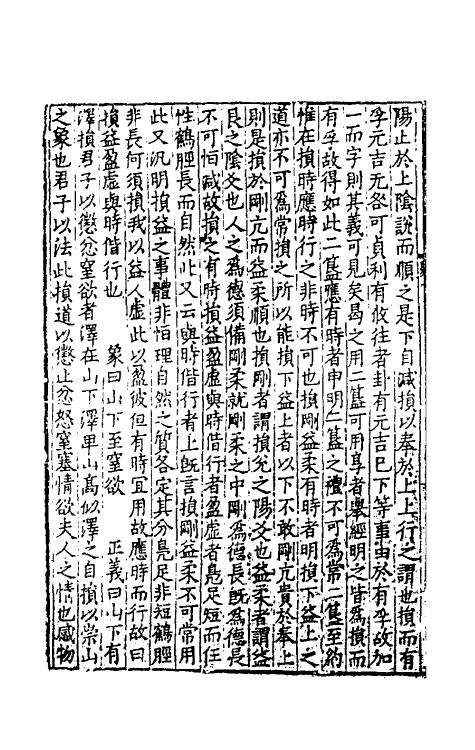 陽止於上陰說而順之是下自減損以奉於上上行之謂也損而有
孚元吉无咎可貞利有攸往者卦有元吉已下等事由於有孚故加
一而字則其義可見矣曷之用二簋可用享者舉經明之皆爲損而
有孚故得如此二簋應有時者申明二簋之禮不可爲常二簋至約
惟在損時應時行之非時不可也損剛益柔有時者明損下益上之
道亦不可爲常損之所以能損下益上者以下不敢剛亢貴於奉上
則是損於剛亢而益柔順也損剛者謂損兊之陽爻也益柔者謂益
艮之陰爻也人之爲德須備剛柔就剛柔之中剛爲德長旣爲德長
不可恒減故損之有時損益盈虛與時偕行者盈虛者鳧足短而任
性鶴脛長而自然此又云與時偕行者上旣言損剛益柔不可常用
此又汎明損益之事體非恒理自然之質各定其分鳧足非短鶴脛
非長何須損我以益人虛此以盈彼但有時宜用故應時而行故曰
損益盈虛與時偕行也　象曰山下至窒欲　正義曰山下有
澤損君子以懲忿窒欲者澤在山下澤卑山高似澤之自損以崇山
之象也君子以法此損道以懲止忿怒窒塞情欲夫人之情也感物